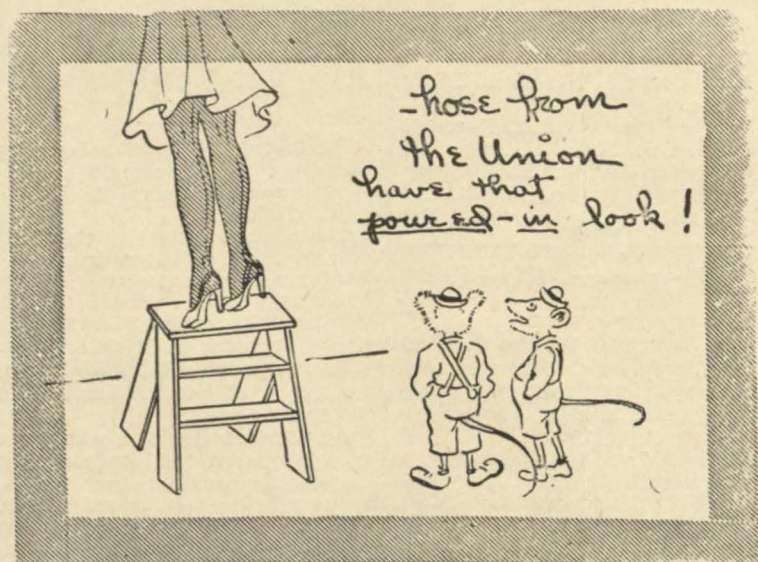 -hose from
the Union
have that
poured-in look!